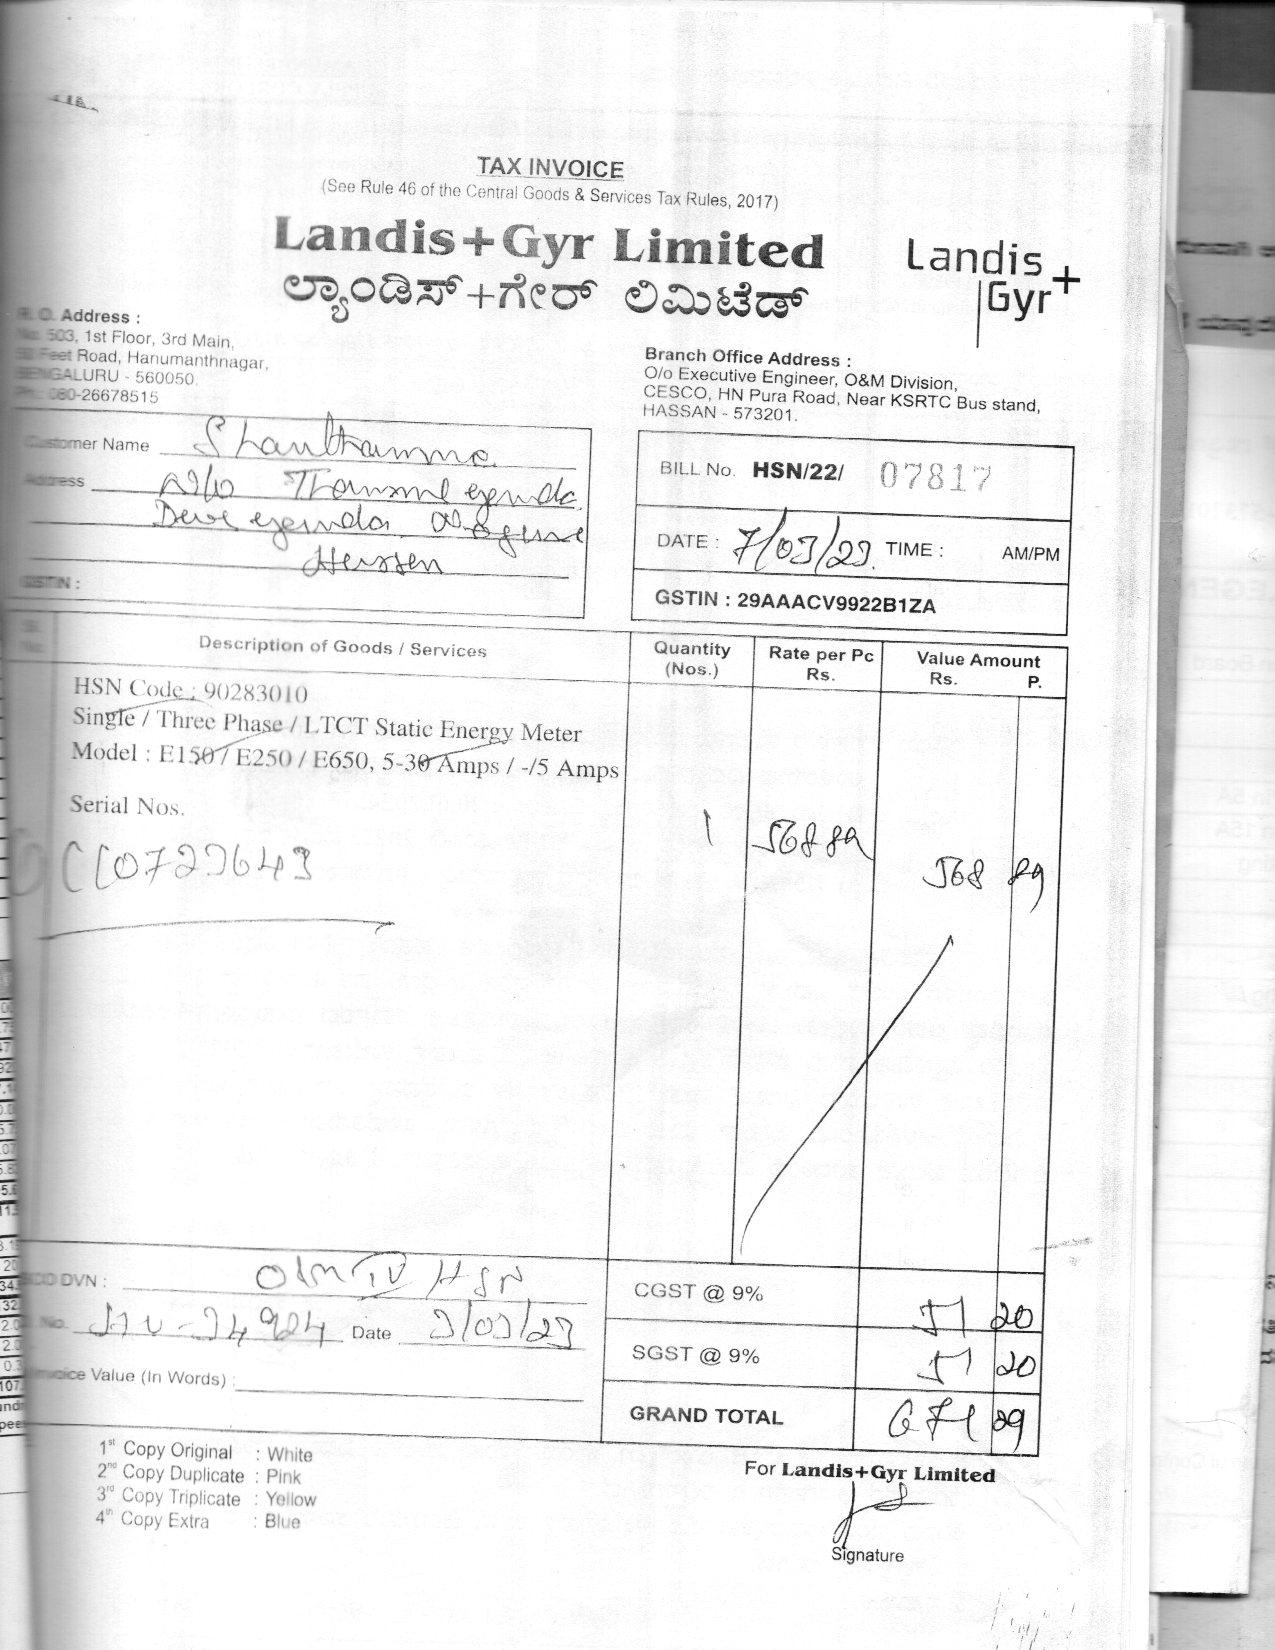 TAX INVOICE
(See Rule 46 of the Central Goods & Services Tax Rules, 2017)
Landis+Gyr Limited
ಲ್ಯಾಂಡಿಸ್+ಗೇರ್ ಲಿಮಿಟೆಡ್
Landis
Gyr+
R. O. Address :
No. 503, 1st Floor, 3rd Main,
Feet Road, Hanumanthnagar,
BENGALURU - 560050.
Ph: 080-26678515
Branch Office Address :
O/o Executive Engineer, O&M Division,
CESCO, HN Pura Road, Near KSRTC Bus stand,
HASSAN - 573201.
Customer Name Shanthamma
Address
Hassan
GSTIN :
BILL No. HSN/22/ 07817
DATE : 7/03/23. TIME : AM/PM
GSTIN : 29AAACV9922B1ZA
Sl. No. Description of Goods / Services Quantity (Nos.) Rate per Pc Rs. Value Amount Rs. P.
HSN Code : 90283010
Single / Three Phase / LTCT Static Energy Meter
Model : E150 / E250 / E650, 5-30 Amps / -/5 Amps
Serial Nos.
1 568 89 568 89
DVN : HSN
No. Date 3/03/23
Invoice Value (In Words) :
CGST @ 9% 51 20
SGST @ 9% 51 20
GRAND TOTAL 671 29
1st Copy Original : White
2nd Copy Duplicate : Pink
3rd Copy Triplicate : Yellow
4th Copy Extra : Blue
For Landis+Gyr Limited
Signature